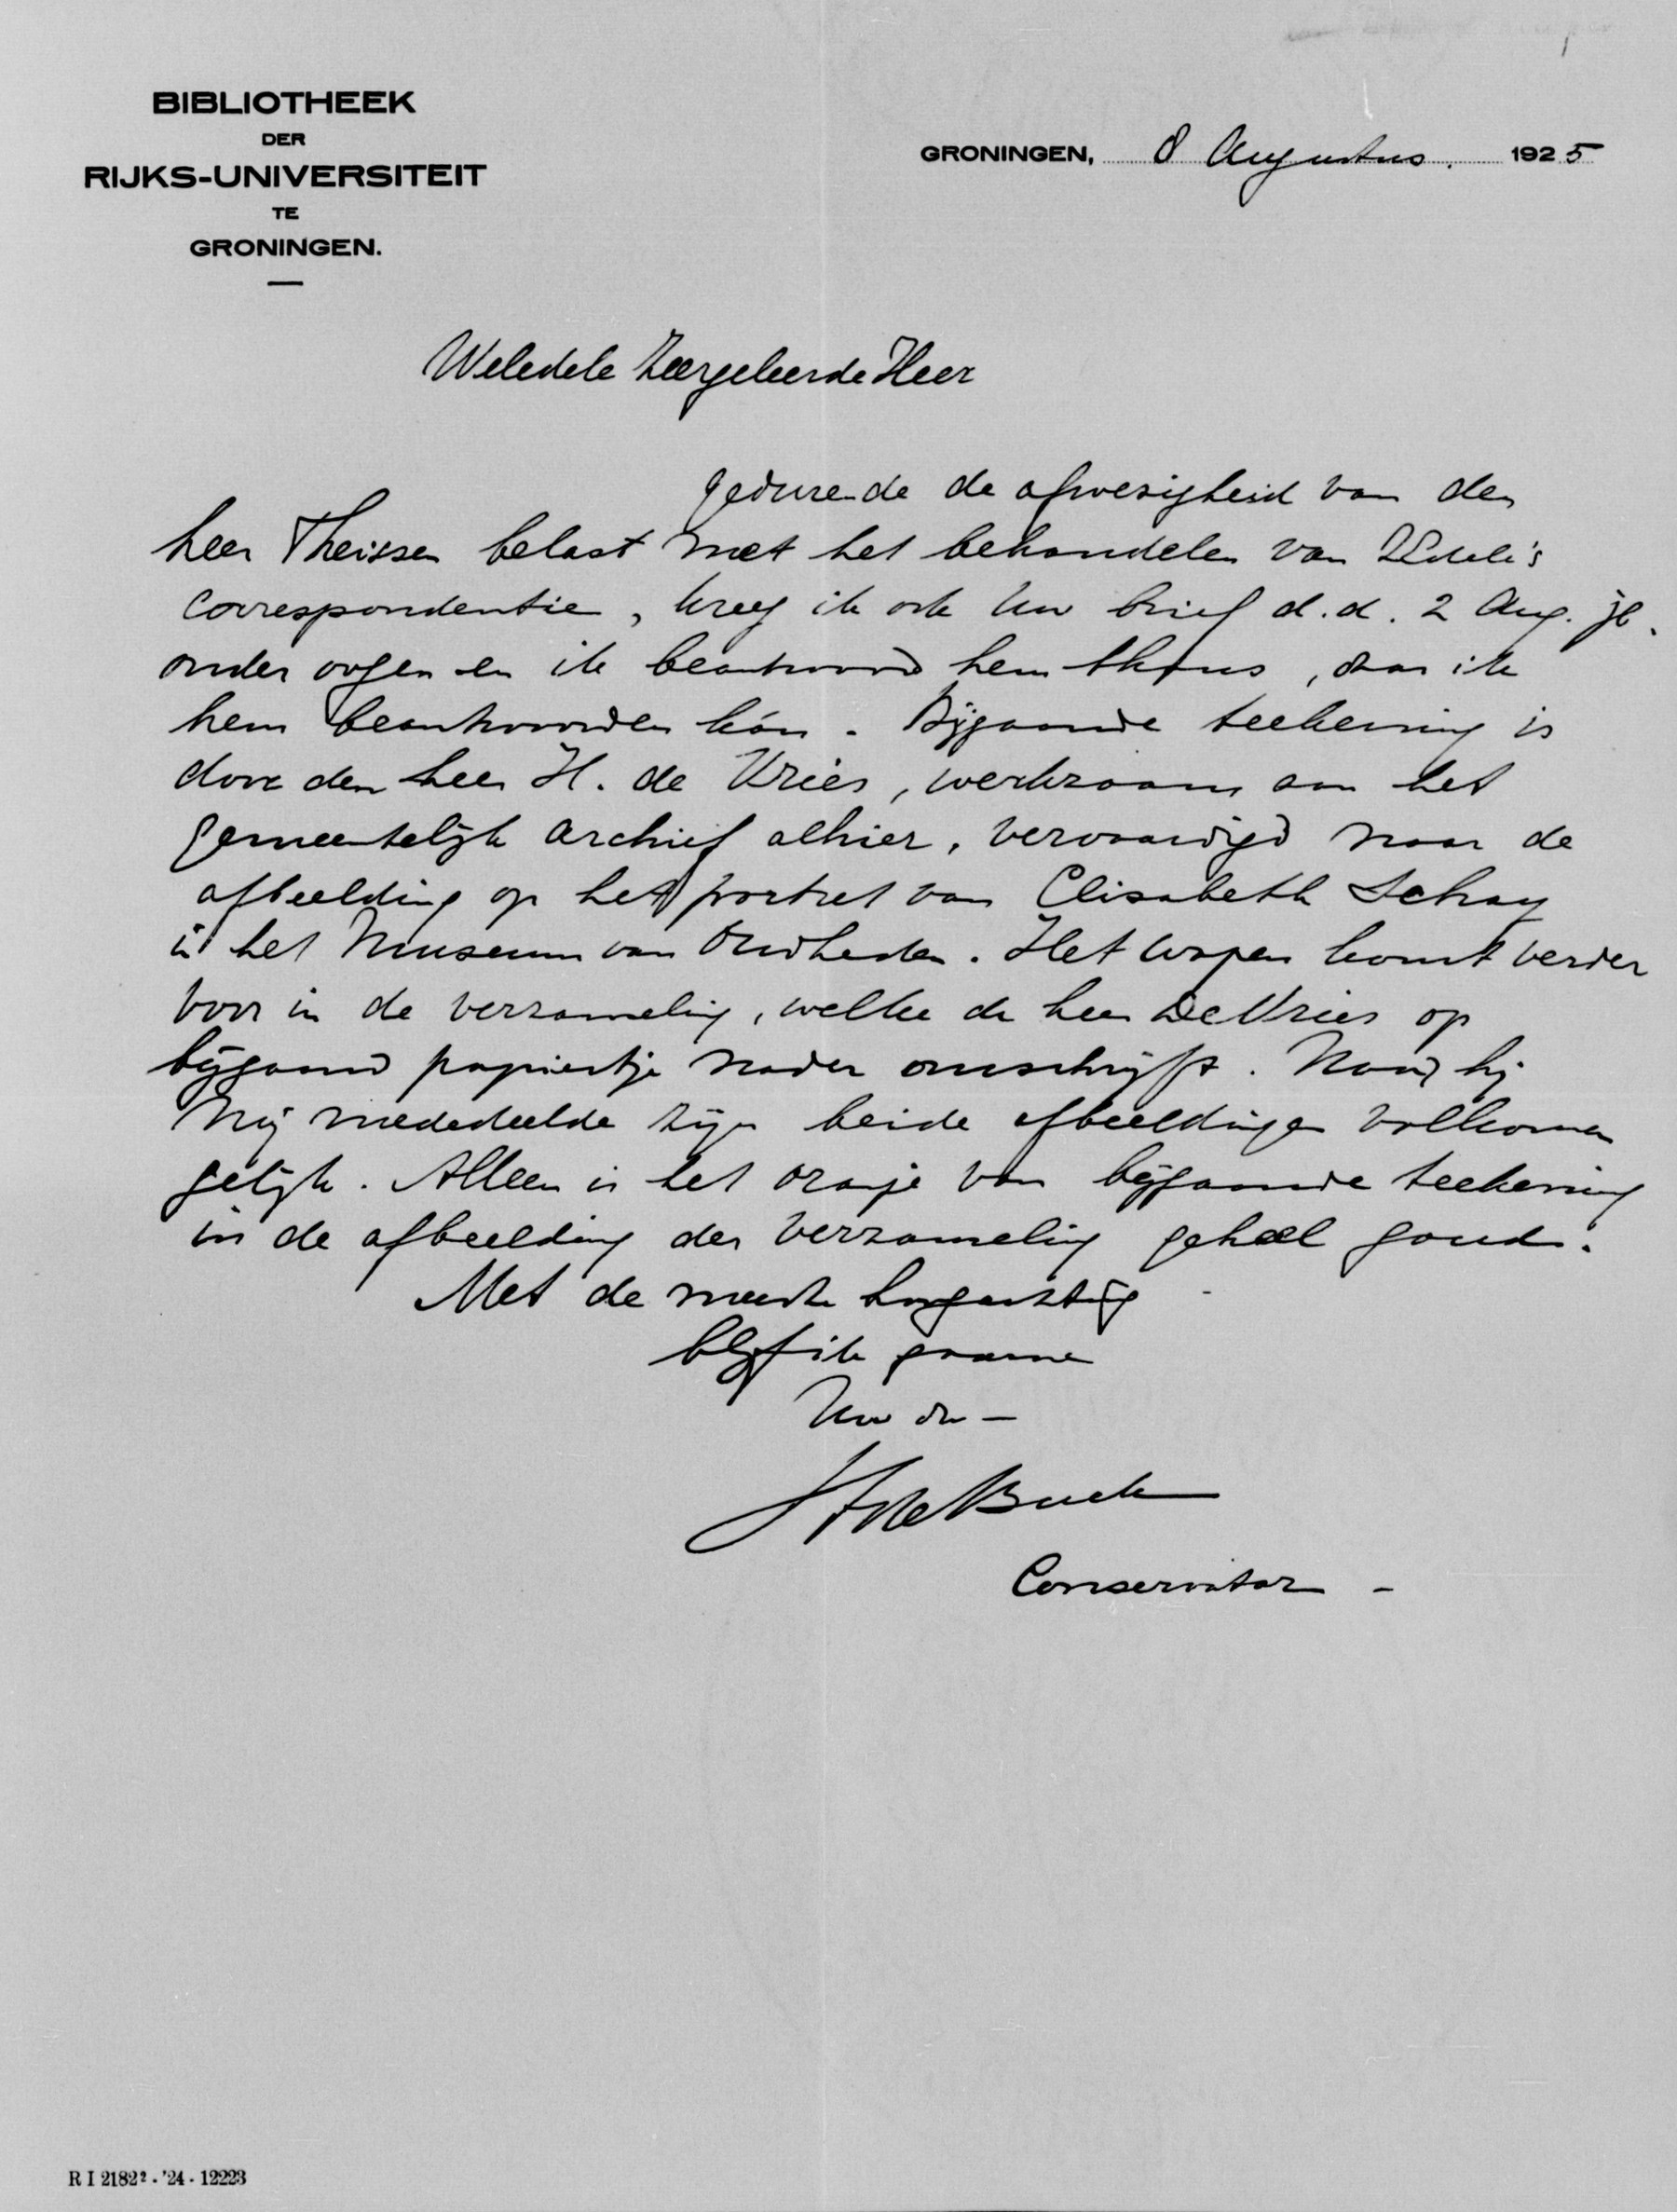 BIBLIOTHEEK
DER
RIJKS-UNIVERSITEIT
TE
GRONINGEN.
GRONINGEN, 8 Augustus. 1925
Weledele Zeergeleerde Heer
gedurende de afwezigheid van den
heer Theissen belast met het behandelen van
correspondentie, kreeg ik ook Uw brief d.d. 2 Aug. jl.
onder oogen en ik beantwoord hem thans, daar ik
hem beantwoorden kán. Bijgaande teekening is
door den heer H. de Vries, werkzaam aan het
gemeentelijk archief alhier, vervaardigd naar de
afbeelding op het portret van Elisabeth Schay
in het Museum van Oudheden. Het wapen komt verder
voor in de verzameling, welke de heer De Vries op
bijgaand papiertje nader omschrijft. Naar hij
mij mededeelde zijn beide afbeeldingen volkomen
gelijk. Alleen is het oranje van bijgaande teekening
in de afbeelding der verzameling geheel goud.
Met de meeste hoogachting
blijf ik gaarne
Uw dr -
de Buck
Conservator -
R I 2182² - '24 - 12223